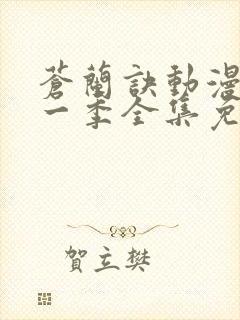 蒼蘭訣動漫
一季全集免
賀立樊